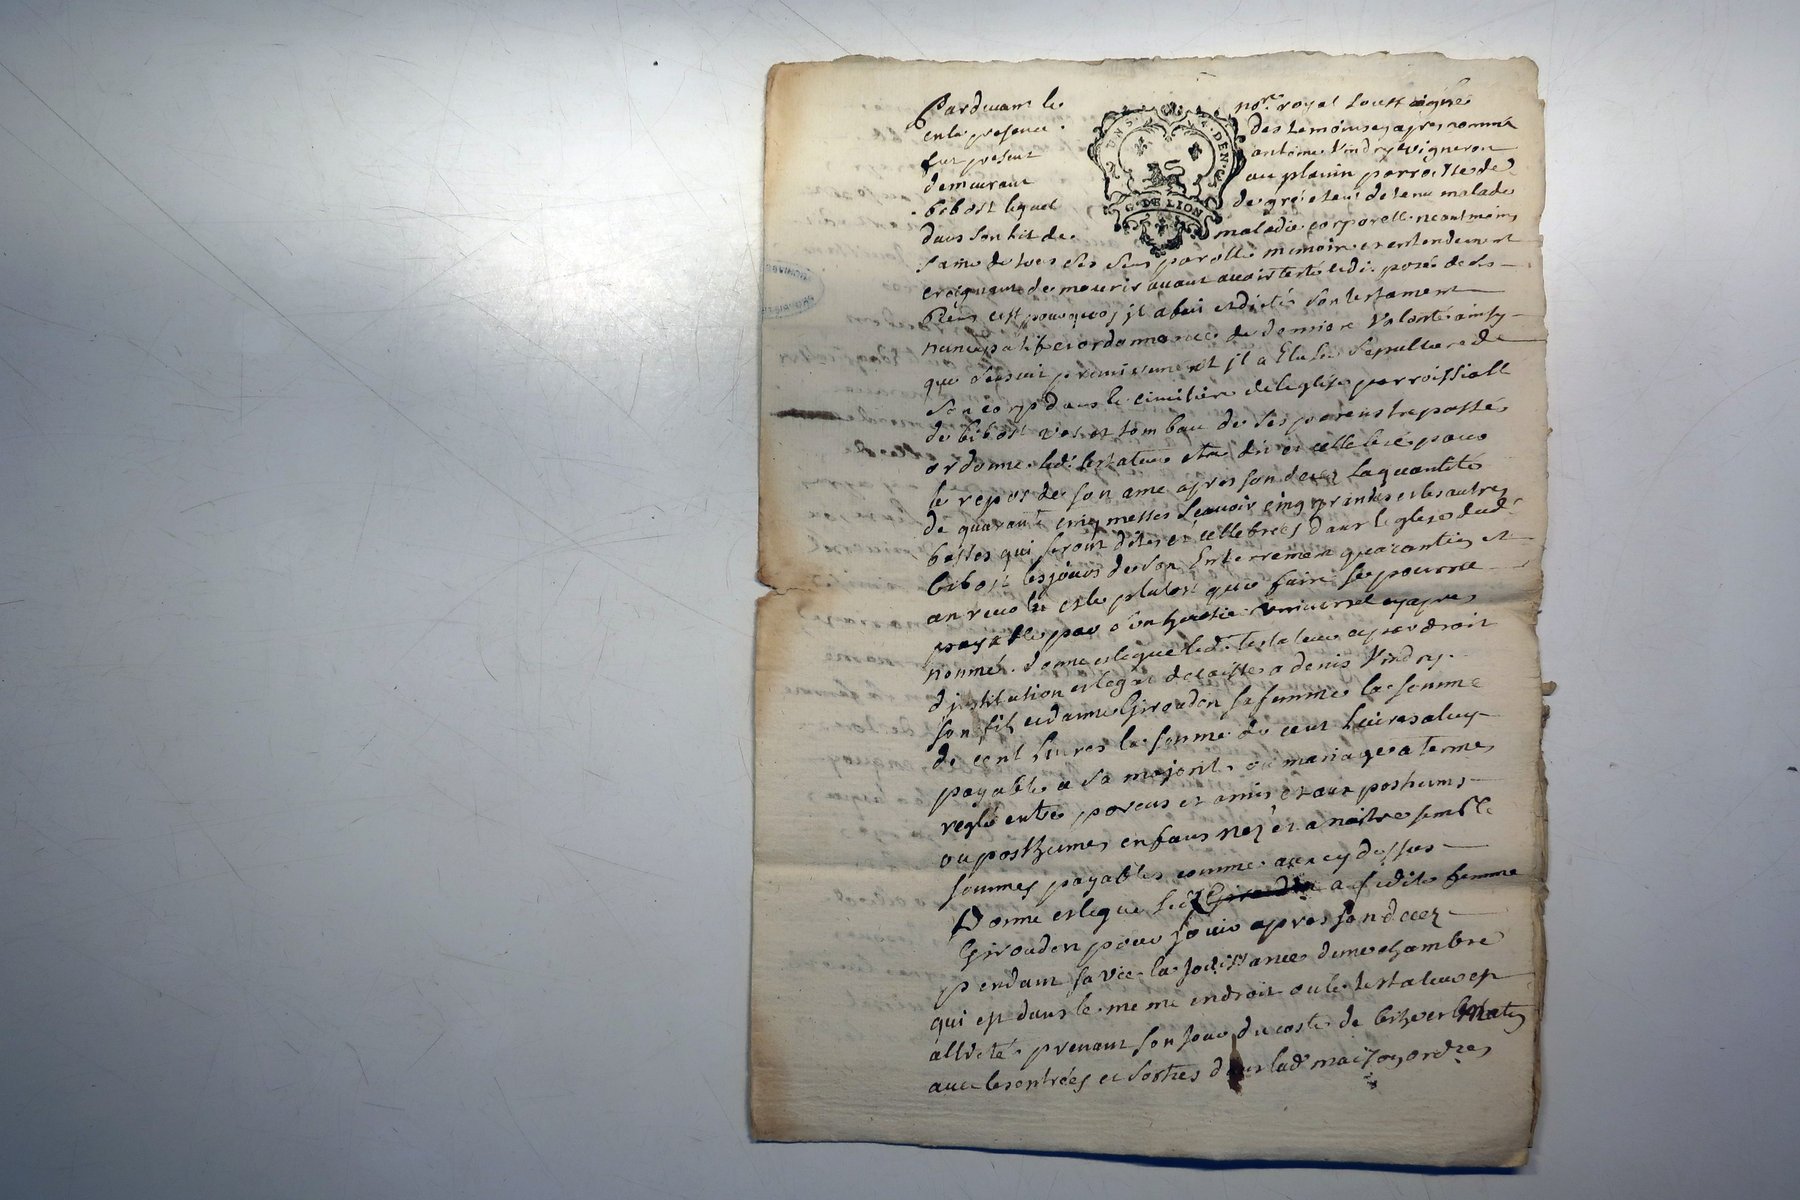 Pardevant le no.re royal soussigné
en la presence des temoins cy apres nommé
fut present antoine Vindry Vigneron
demeurant au plavin parroisse de
bibost lequel de gré etant detenu malade
dans son lit de maladie corporelle neantmoins
saine de tous ses sens parolle memoire et entendement
creignant de mourir avant avoir testé et di posé de ses
biens c'est pourquoy jl a fait et dicté son testament
nuncupatif et ordonnance de derniere Volonté ainsy
que s'ensuit premierement jl a Elu la sepulture de
son corp dans le cimitiere de leglise parroissialle
de bibost et tombau de ses parens trepassés
ordonne led. testateur etre dit et cellebré pour
le repos de son ame apres son decez la quantité
de quarante cinq messes scavoir cinq grandes et les autres
basses qui seront dites et cellebrées dans leglise dud.
bibost les jours de son Enterrement quarantin et
an revolu et le plutost que faire se pourra
payable par son heritier universel cy apres
nommé. donne et legue led. testateur et par droit
d'jnstitution et legat delaisse a denis Vindry
son fils et danne Giroudon sa femme la somme
de cent livres la somme de cent livres a luy
payable a sa majorité ou mariage a termes
reglé entre parens et amis et aux posthume
ou posthumes enfans nez et a naitre semble
sommes payables comme cy dessus
Donne et legue led. a sudite femme
Giroudon pour jouir apres son decez
pendant sa vie la jouissance dune chambre
qui est dans le meme endroit ou le testateur est
allité prenant son jour du costé de bize et matin
avec les entrées et sorties dans lad. maison